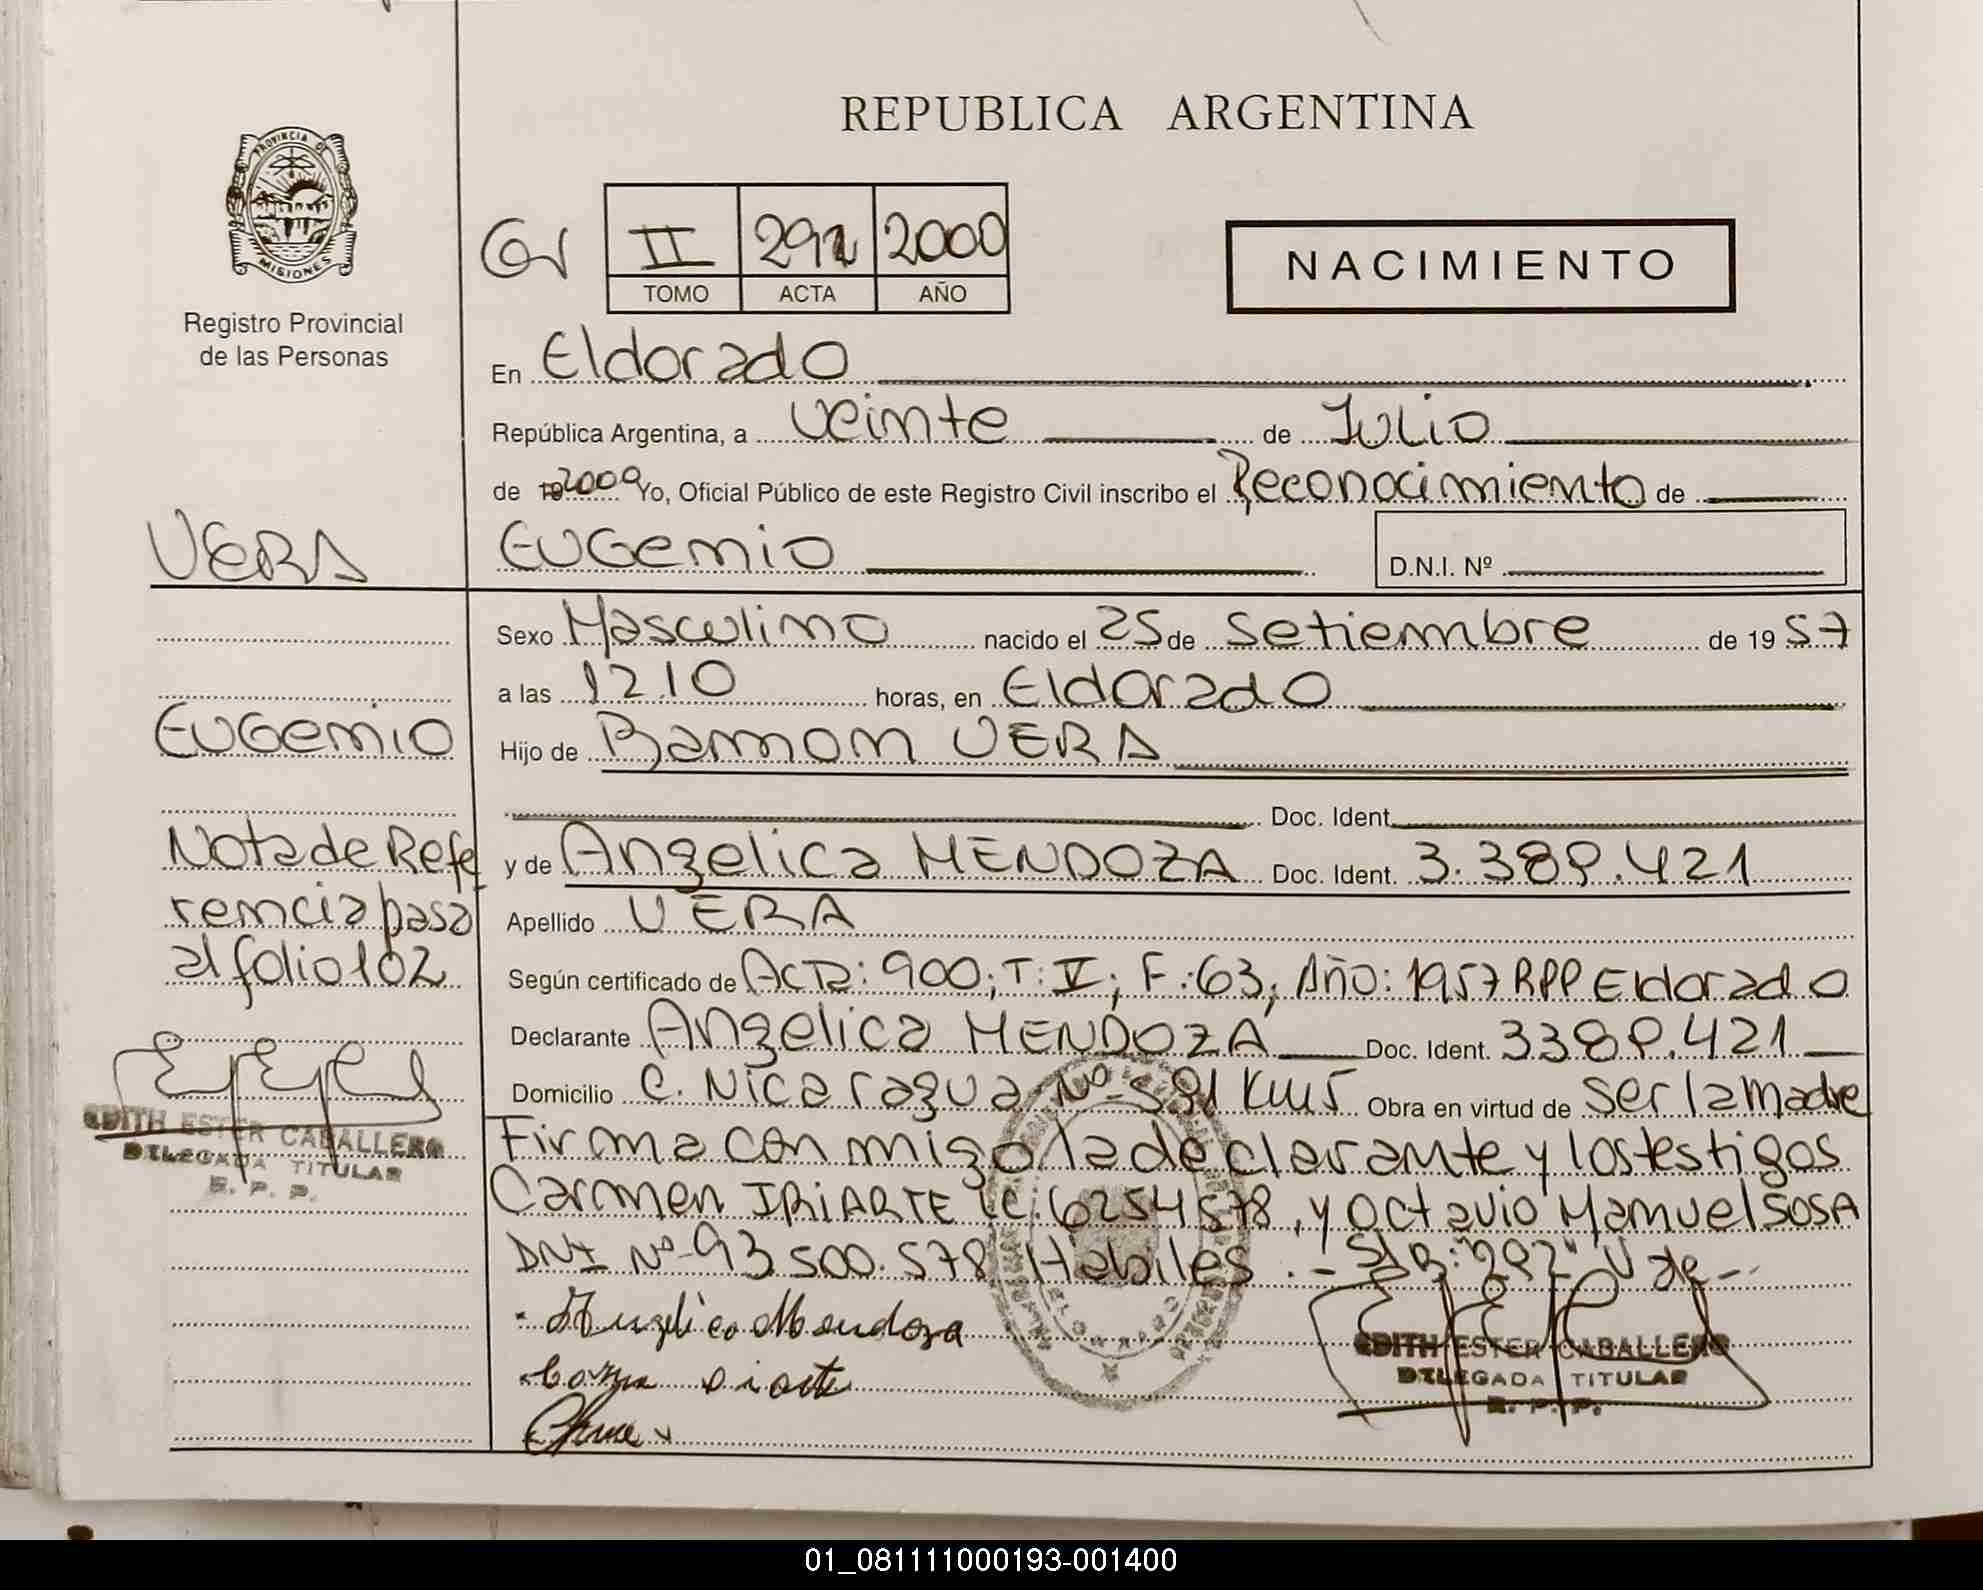 REPUBLICA ARGENTINA
PROVINCIA DE
MISIONES
Registro Provincial
de las Personas
II 292 2000
TOMO ACTA AÑO
NACIMIENTO
En Eldorado
República Argentina, a veinte de Julio
de 2000 Yo, Oficial Público de este Registro Civil inscribo el Reconocimiento de
VERA
EUGenio
D.N.I. Nº
Sexo Masculino nacido el 25 de Setiembre de 19 57
a las 12.10 horas, en Eldorado
EUGenio
Hijo de Ramon VERA
Doc. Ident.
Nota de Refe
y de Angelica MENDOZA Doc. Ident. 3.389.421
rencia pasa
Apellido VERA
al folio 102
Según certificado de Acta: 900; T: V; F: 63; Año: 1957 RPP Eldorado
Declarante Angelica MENDOZA Doc. Ident. 3389.421
Domicilio C. Nicaragua Nº 591 Km 5 Obra en virtud de ser la Madre
EDITH ESTER CABALLERO
DELEGADA TITULAR
R. P. P.
Firma con migo la declarante y los testigos
Carmen IRIARTE LC: 6254578, y Octavio Manuel SOSA
DNI Nº 93.500.578 Habiles.- S/R: "292" Vde.-
Angelica Mendoza
EDITH ESTER CABALLERO
DELEGADA TITULAR
R. P. P.
01_081111000193-001400